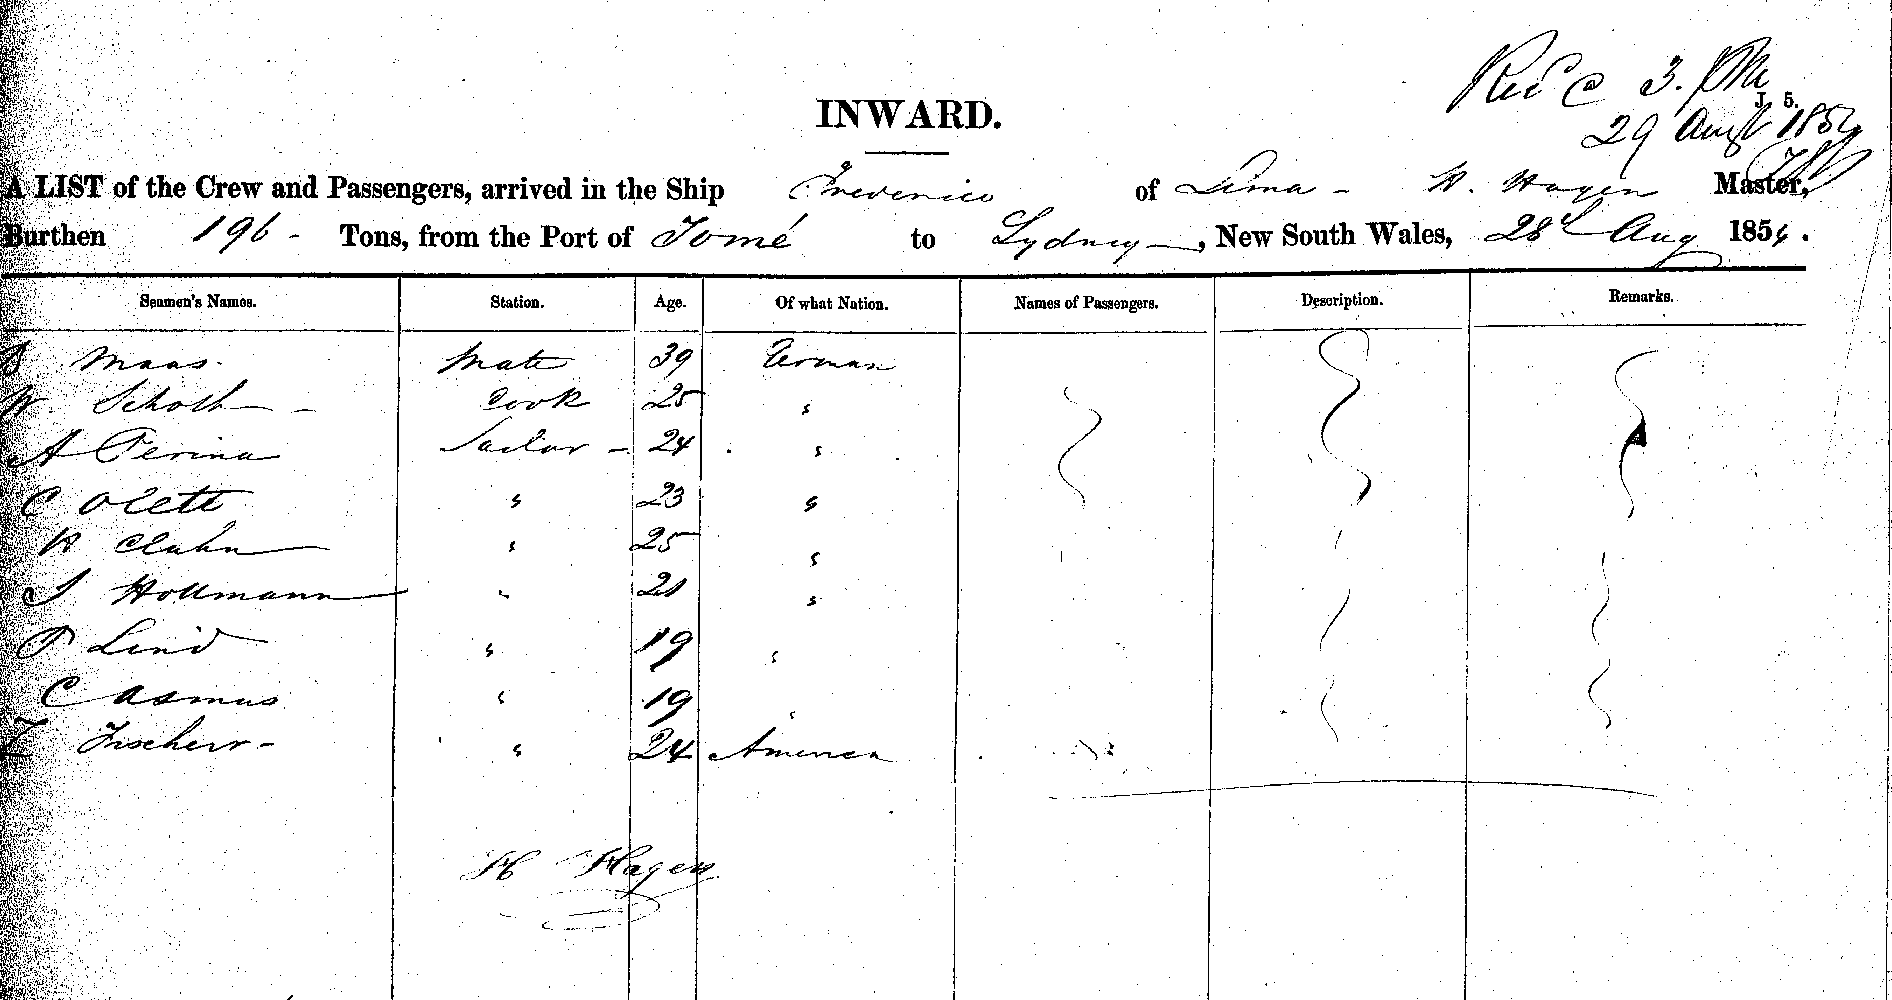 Rec'd 3. PM
J 5.
29 Augt 1854
INWARD.
A LIST of the Crew and Passengers, arrived in the Ship Frederico of Lima - H. Hagen Master,
Burthen 196 - Tons, from the Port of Tomé to Sydney, New South Wales, 28th Aug 1854.
Seamen's Names. Station. Age. Of what Nation. Names of Passengers. Description. Remarks.
B Maas. Mate 39 German
W Scholh - Cook 25 "
A Perina Sailor - 24 "
C Olett " 23 "
H Clahn " 25 "
J Hollmann " 21 "
P Lind " 19 "
C Asmus " 19 "
Fischerr - " 24 America
H Hagen